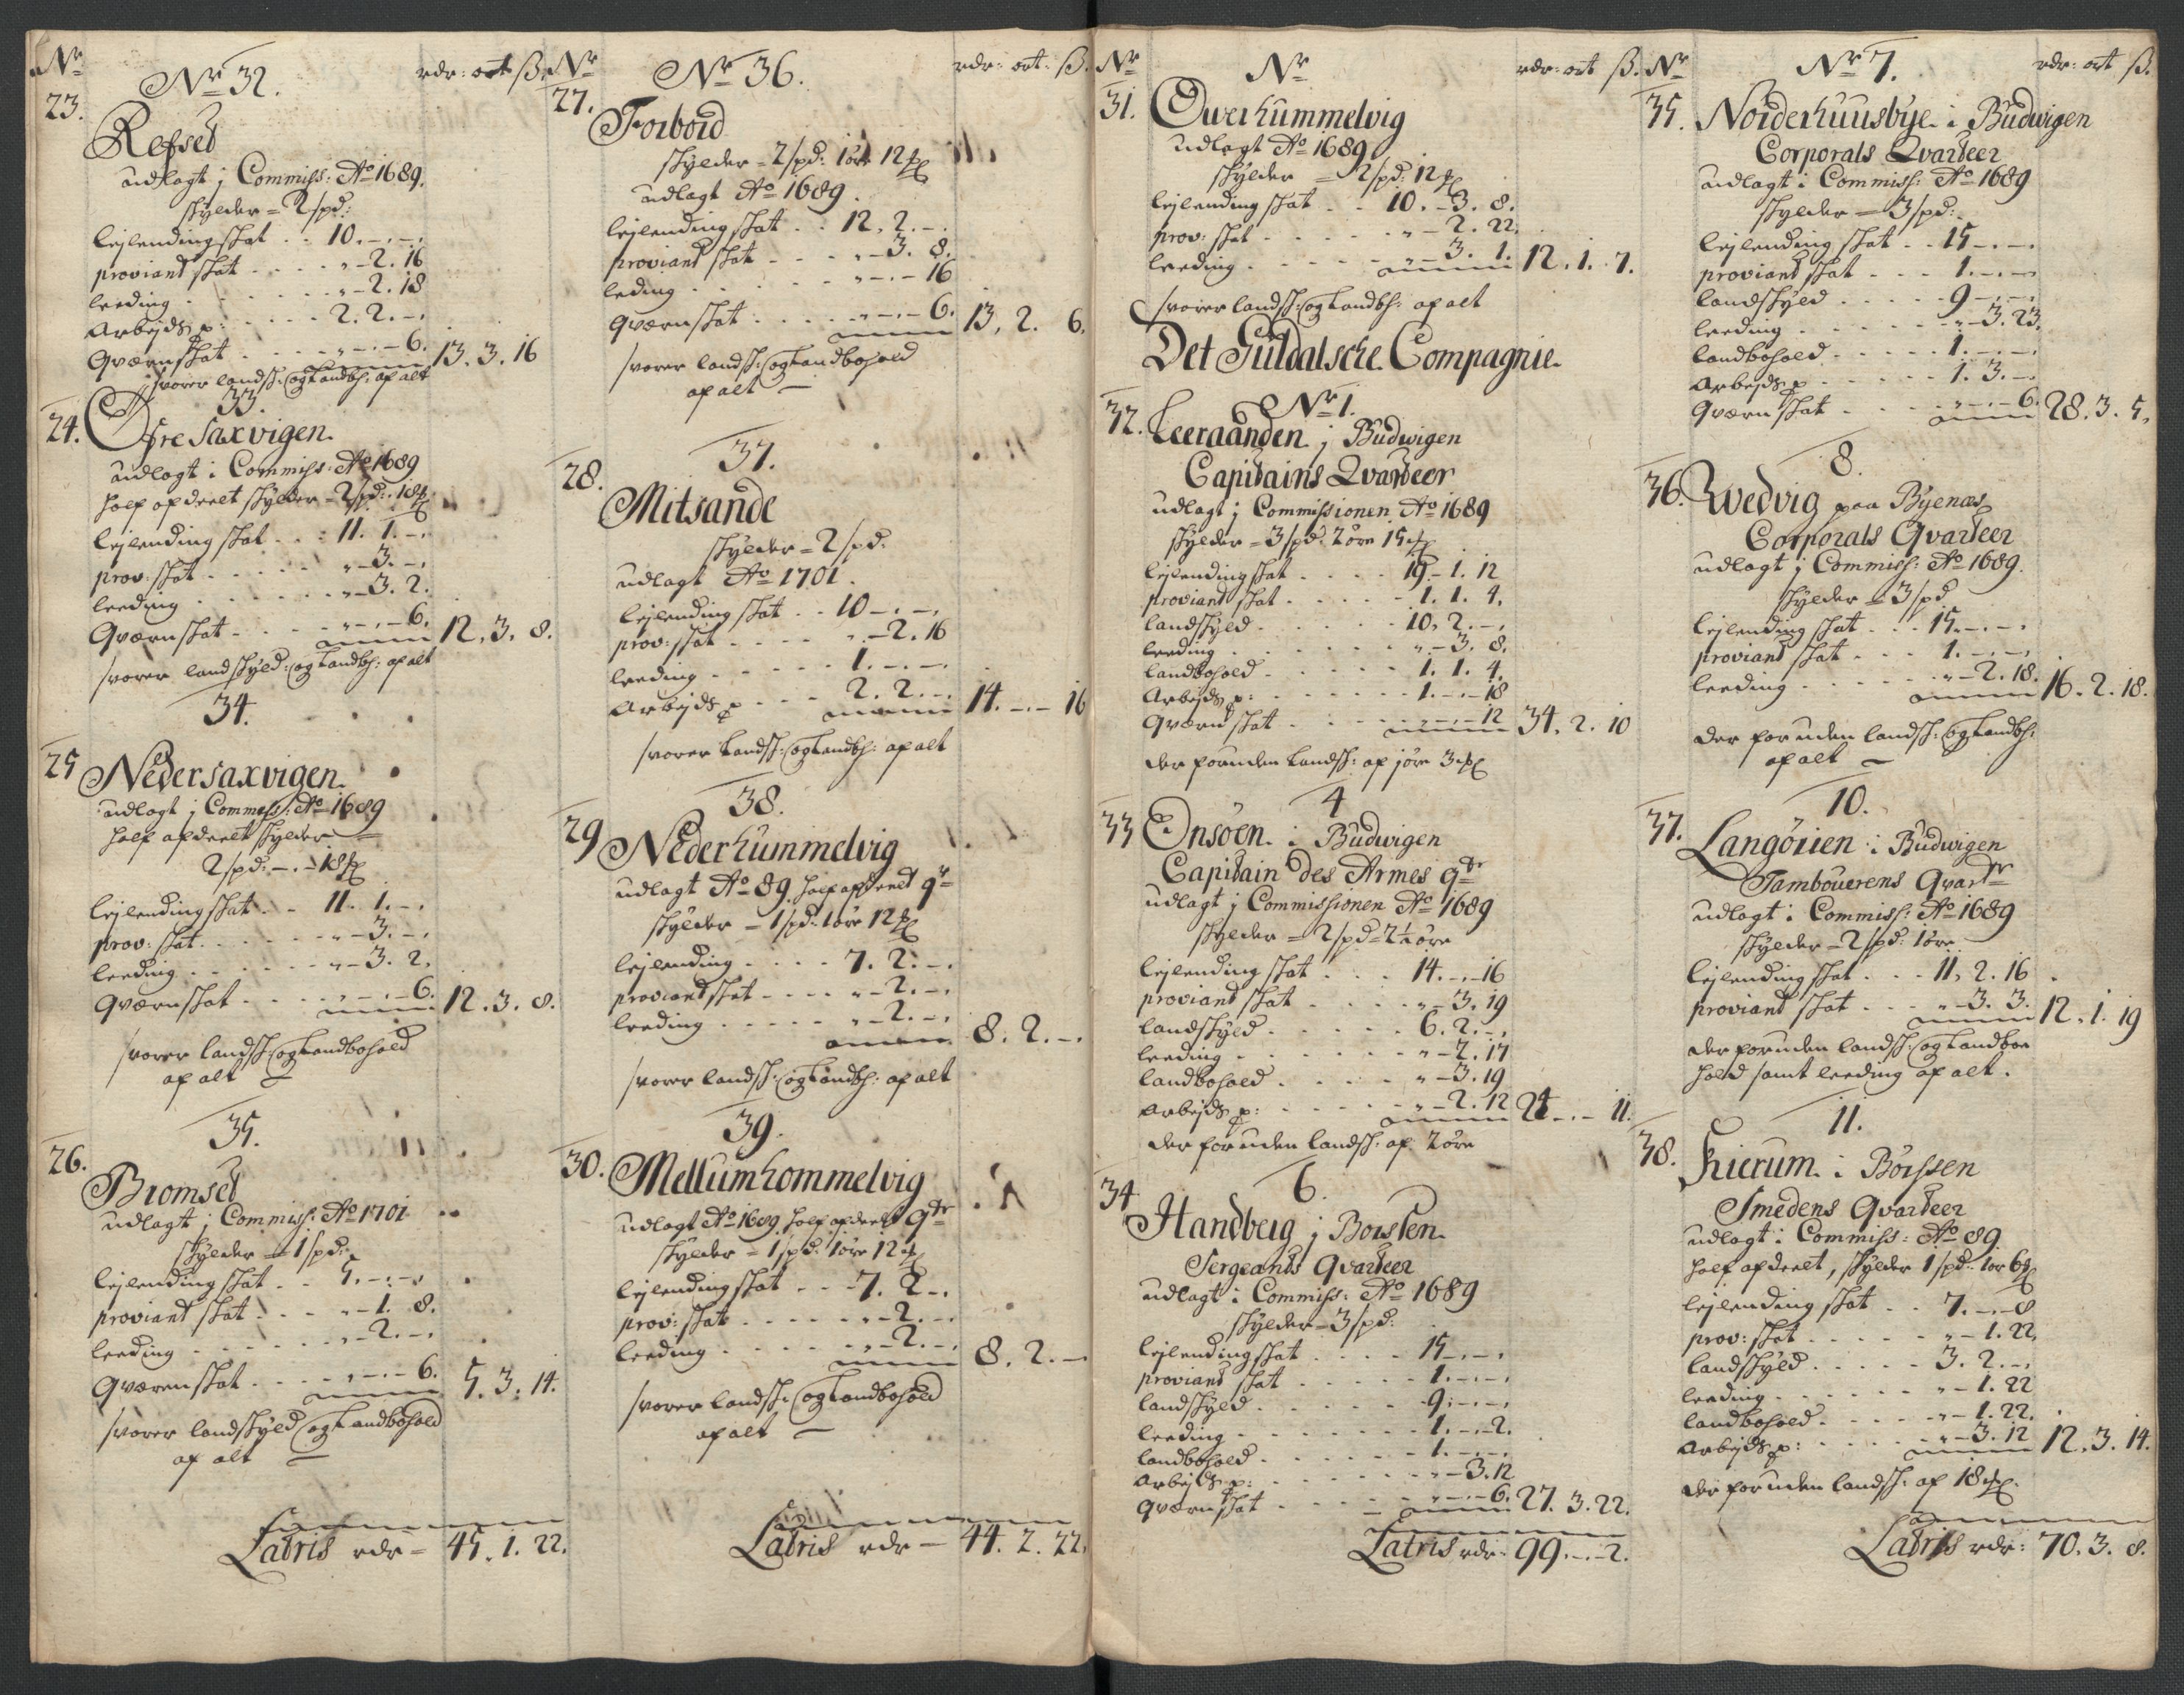 Nr No 32. rdr: ort ß.
23.
Refset
udlagt j Commiss: Ao 1689.
skylder = 2 spd:
leylending skat . . 10. - . - .
proviant skat . . . . " - 2. 16
leeding . . . . . " - 2. 18
Arbejds p: . . . . 2. 2. -.
Qværnskat . . . " - . - 6. 13. 3. 16
svarer landsk: og Landbh: af alt
33.
24. Øfre Saxvigen.
udlagt i Commiss: Ao 1689
half afdeelt skylder = 2 spd: 18 mkl
leylending skat . . : 11. 1. -.
prov: skat . . . . . " - 3. -.
leeding . . . . . . " - 3. 2.
Qværnskat . . . . " - . - 6. 12. 3. 8.
svarer landskyld: og Landbh: af alt
34.
25 Nedersaxvigen.
udlagt j Commiss: Ao 1689
half afdeelt skylder =
2 spd: - . - 18 mkl
leylending skat . . 11. 1. -.
prov: skat . . . . . " - 3. -.
leeding . . . . . " - 3. 2.
Qværnskat . . . . " - . - 6. 12. 3. 8.
svarer landsk: og Landbohold
af alt =
35.
26. Bromset
udlagt j Commiss: Ao 1701
skylder = 1 spd:
leylending skat . . 5. - . -
proviant skat . . . " - 1. 8.
leeding . . . . . " - 2. -.
Qværenskat . . . . " - . - 6. 5. 3. 14.
svarer landskyld og Landbohold
af alt =
Latris rdr = 45. 1. 22.
Nr No 36. rdr: ort: ß.
27. Forbord
skylder = 2 spd: 1 øre 12 mkl
udlagt Ao 1689.
leylending skat . . 12. 2. -.
proviant skat . . . " - 3. 8.
leding . . . . . " - . - 16
Qværnskat . . . . " - . - 6. 13. 2. 6.
svarer landsk: og Landbohold
af alt -
37.
28. Mitsande
skylder = 2 spd:
udlagt Ao 1701.
leylending skat . . 10 - . -.
prov: skat . . . . " - 2. 16
leeding . . . . . 1. - . -.
Arbejds p . . . . 2. 2. -. 14. - . - 16
svarer Landsk: og Landbh: af alt
38.
29 Nederhummelvig
udlagt Ao 89. half afdeelt qr
skylder = 1 spd: 1 øre 12 mkl
leylending . . . . 7. 2. -.
proviantskat . . . . " - 2. -.
leeding . . . . . " - 2. -. 8. 2. -.
svarer landsk: og Landbh: af alt
39.
30. Mellumhommelvig
udlagt Ao 1689 half afdeelt qdr
skylder = 1 spd: 1 øre 12 mkl
leylending skat . . . 7. 2 -.
prov: skat . . . . . " - 2. -
leeding . . . . . " - 2. -. 8. 2. -
svarer landsk: og Landbohold
af alt -
Latris rdr - 44. 2. 22.
Nr Nr rdr: ort ß.
31. Ower hummelvig
udlagt Ao 1689
skylder = 2 spd: 12 mkl
leylending skat . . 10. - 3. 8.
prov: skat . . . . . " - 2. 22.
leeding . . . . . " - 3. 1. 12. 1. 7.
svarer landsk: og Landbh: af alt
Det Guldalsche Compagnie.
Nr 1.
32. Leeraanden j Budwigen
Capitains Qvarteer
udlagt j Commissionen Ao 1689
skylder = 3 spd: 2 øre 15 mkl
leylending skat . . . . 19 - 1. 12
proviant skat . . . . . 1. 1. 4.
landskyld . . . . . 10. 2. -.
leeding . . . . . . " - 3. 8.
landbohold . . . . . 1. 1. 4.
Arbejds p: . . . . . 1. - . - 18
Qværn skat . . . . . " - . - 12 34. 2. 10
der foruden Landsk: af j øre 3 mkl
4
33 Onsøen i Budwigen
Capitain des Armes qdr
udlagt j Commissionen Ao 1689
skylder = 2 spd = 2 1/2 øre
leylending skat . . . 14. - . - 16
proviant skat . . . . " - 3. 19
landskyld . . . . . 6. 2. -.
leeding . . . . . . " - 2. 17
landbohold . . . . . " - 3. 19
Arbejds p: . . . . . " - 2. 12 24 - . - 11.
der foruden landsk: af 2 øre
6.
34 Handberg j Borssen
Sergeants Qvarteer
udlagt i Commiss: Ao 1689
skylder = 3 spd:
leylending skat . . . . 15 - . - .
proviant skat . . . . . 1. - . - .
landskyld . . . . . . 9. - . - .
leeding . . . . . . . 1. - . - 2.
landbohold . . . . . . 1. - . - .
Arbejds p: . . . . . " - 3. 12
Qværnskat . . . . . " - . - 6. 27. 3. 22.
Latris rdr - 99. - . - 2.
Nr Nr 7. rdr: ort ß.
35. Norderhuusbye i Budwigen
Corporals Qvarteer
udlagt i Commiss: Ao 1689
skylder = 3 spd:
leylending skat . . 15 - . - .
proviant skat . . . 1. - . -
landskyld . . . . . 9 - . - .
leeding . . . . . " - 3. 23.
landbohold . . . . . 1. - . - .
Arbejds p . . . . . 1. 3. -.
Qværn skat . . . . " - . - 6. 28. 3. 5.
8.
36. Wedvig paa Byenæs
Corporals Qvarteer
udlagt j Commiss: Ao 1689.
skylder = 3 spd
leylending skat . . . 15. - . - .
proviant skat . . . 1. - . - .
leeding . . . . . . " - 2. 18. 16. 2. 18.
der foruden landsk: og Landbh:
af alt -
10.
37. Langörien i Budwigen
Tambouerens Qvartr
udlagt i Commiss: Ao 1689
skylder = 2 spd: 1 øre
leylending skat . . . 11. 2. 16
proviant skat . . . " - 3. 3. 12. 1. 19
der foruden landsk: og Landboe
hold samt leeding af alt.
11.
38. Kierum i Börssen
Smedens Qvarteer
udlagt i Commiss: Ao 89
half afdeelt, skylder 1 spd: 1 ør 6 mkl
leylending skat . . 7. - . - 8
prov: skat . . . . . " - 1. 22.
landskyld . . . . . 3. 2. -.
leeding . . . . . " - 1. 22
landbohold . . . . " - 1. 22.
Arbejds p: . . . . " - 3. 12 12. 3. 14.
der foruden landsk: af 18 mkl.
Latris rdr: 70. 3. 8.